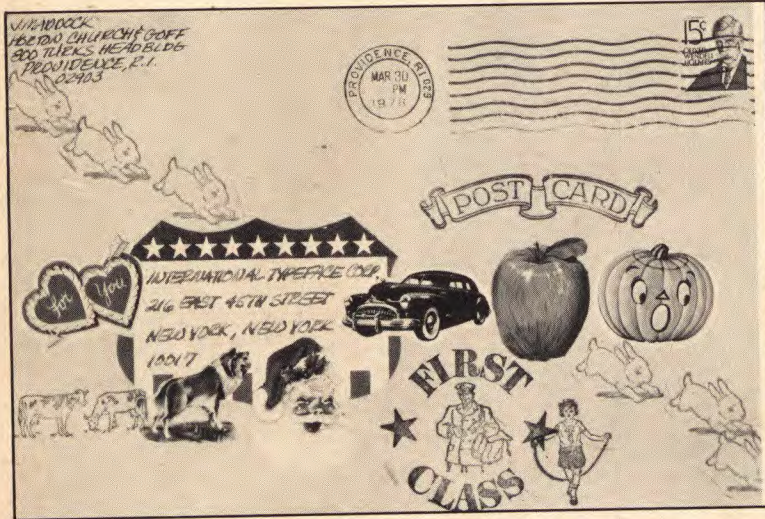 V. MADDOCK
HORTON CHURCH & GOFF
800 TURKS HEAD BLDG
PROVIDENCE, R.I.
02903
PROVIDENCE, RI 029
MAR 30
PM
1978
15¢
POST CARD
For You
INTERNATIONAL TYPEFACE CORP.
216 EAST 45TH STREET
NEW YORK, NEW YORK
10017
FIRST
CLASS